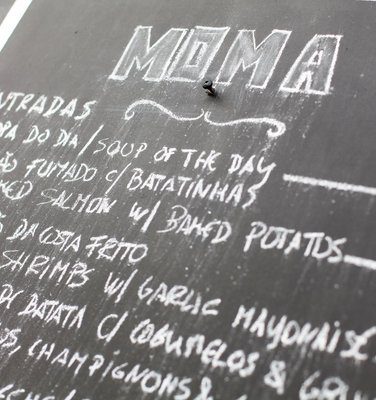 MOMA
NTRADAS
OPA DO DIA / SOUP OF THE DAY
FUMADO C/ BATATINHAS
SALMON W/ BAKED POTATOS
DA COSTA FRITO
SHRIMPS W/ GARLIC MAYONAISE
BATATA C/ COGUMELOS &
CHAMPIGNONS &